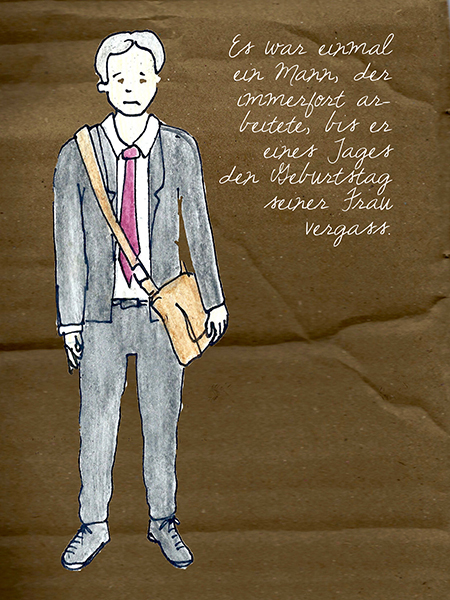 Es war einmal
ein Mann, der
immerfort ar-
beitete, bis er
eines Tages
den Geburtstag
seiner Frau
vergass.